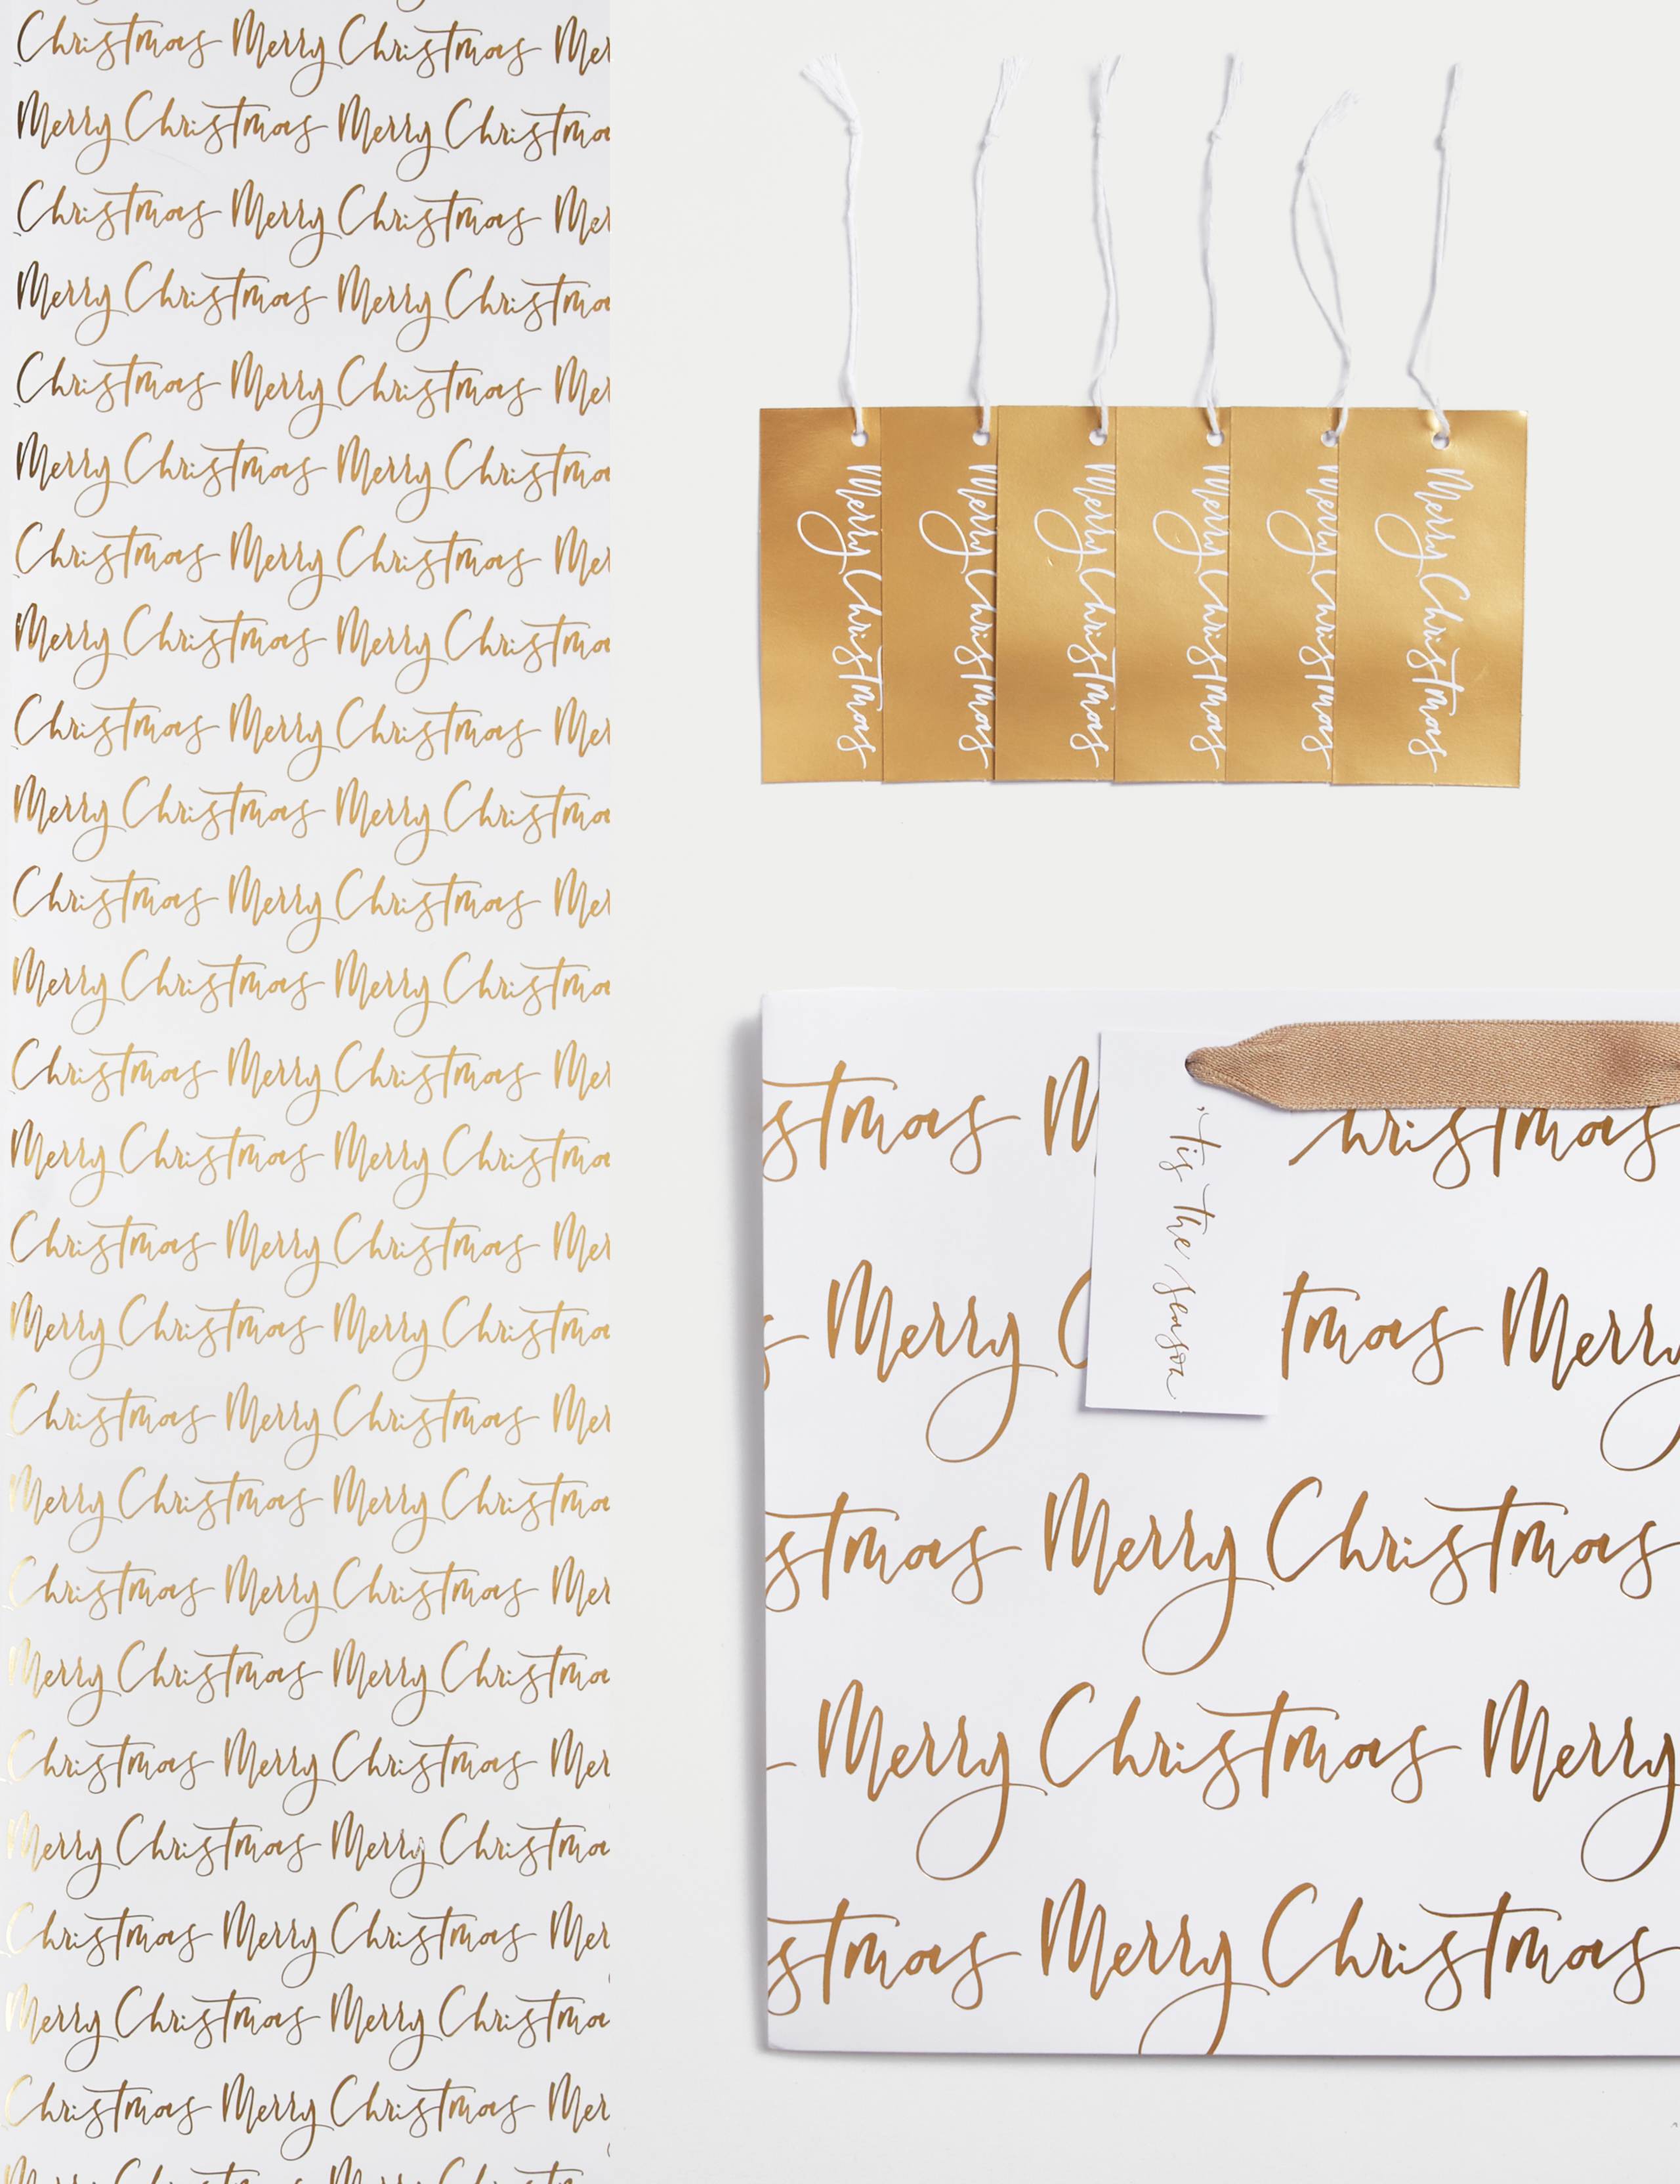 Christmas Merry Christmas Mer
Merry Christmas Merry Christma
Christmas Merry Christmas Mer
Merry Christmas Merry Christma
Christmas Merry Christmas Mer
Merry Christmas Merry Christma
Christmas Merry Christmas Mer
Merry Christmas Merry Christma
Christmas Merry Christmas Mer
Merry Christmas Merry Christma
Christmas Merry Christmas Mer
Merry Christmas Merry Christma
Christmas Merry Christmas Mer
Merry Christmas Merry Christma
Christmas Merry Christmas Mer
Merry Christmas Merry Christma
Christmas Merry Christmas Mer
Merry Christmas Merry Christma
Christmas Merry Christmas Mer
Merry Christmas Merry Christma
Christmas Merry Christmas Mer
Merry Christmas Merry Christma
Christmas Merry Christmas Mer
Merry Christmas Merry Christma
Christmas Merry Christmas Mer
Merry Christmas
Merry Christmas
Merry Christmas
Merry Christmas
Merry Christmas
Merry Christmas
stmas M hristmas
'tis the season
s Merry C tmas Merry
stmas Merry Christmas
Merry Christmas Merry
stmas Merry Christmas